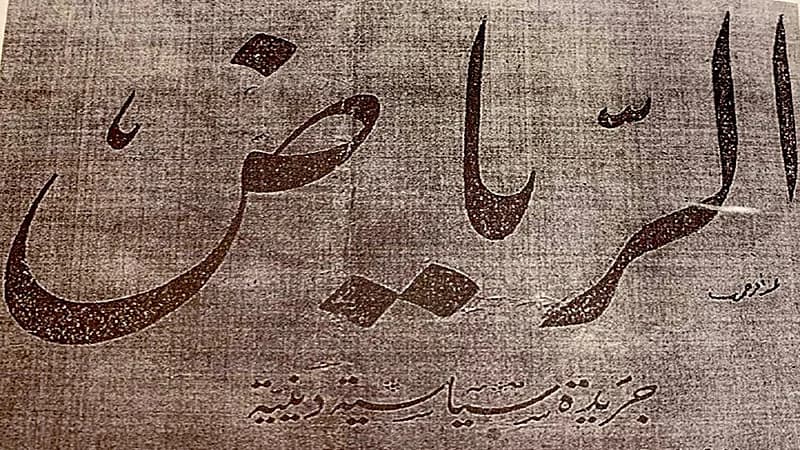 الرّياض
جَريدة سياسية دينية